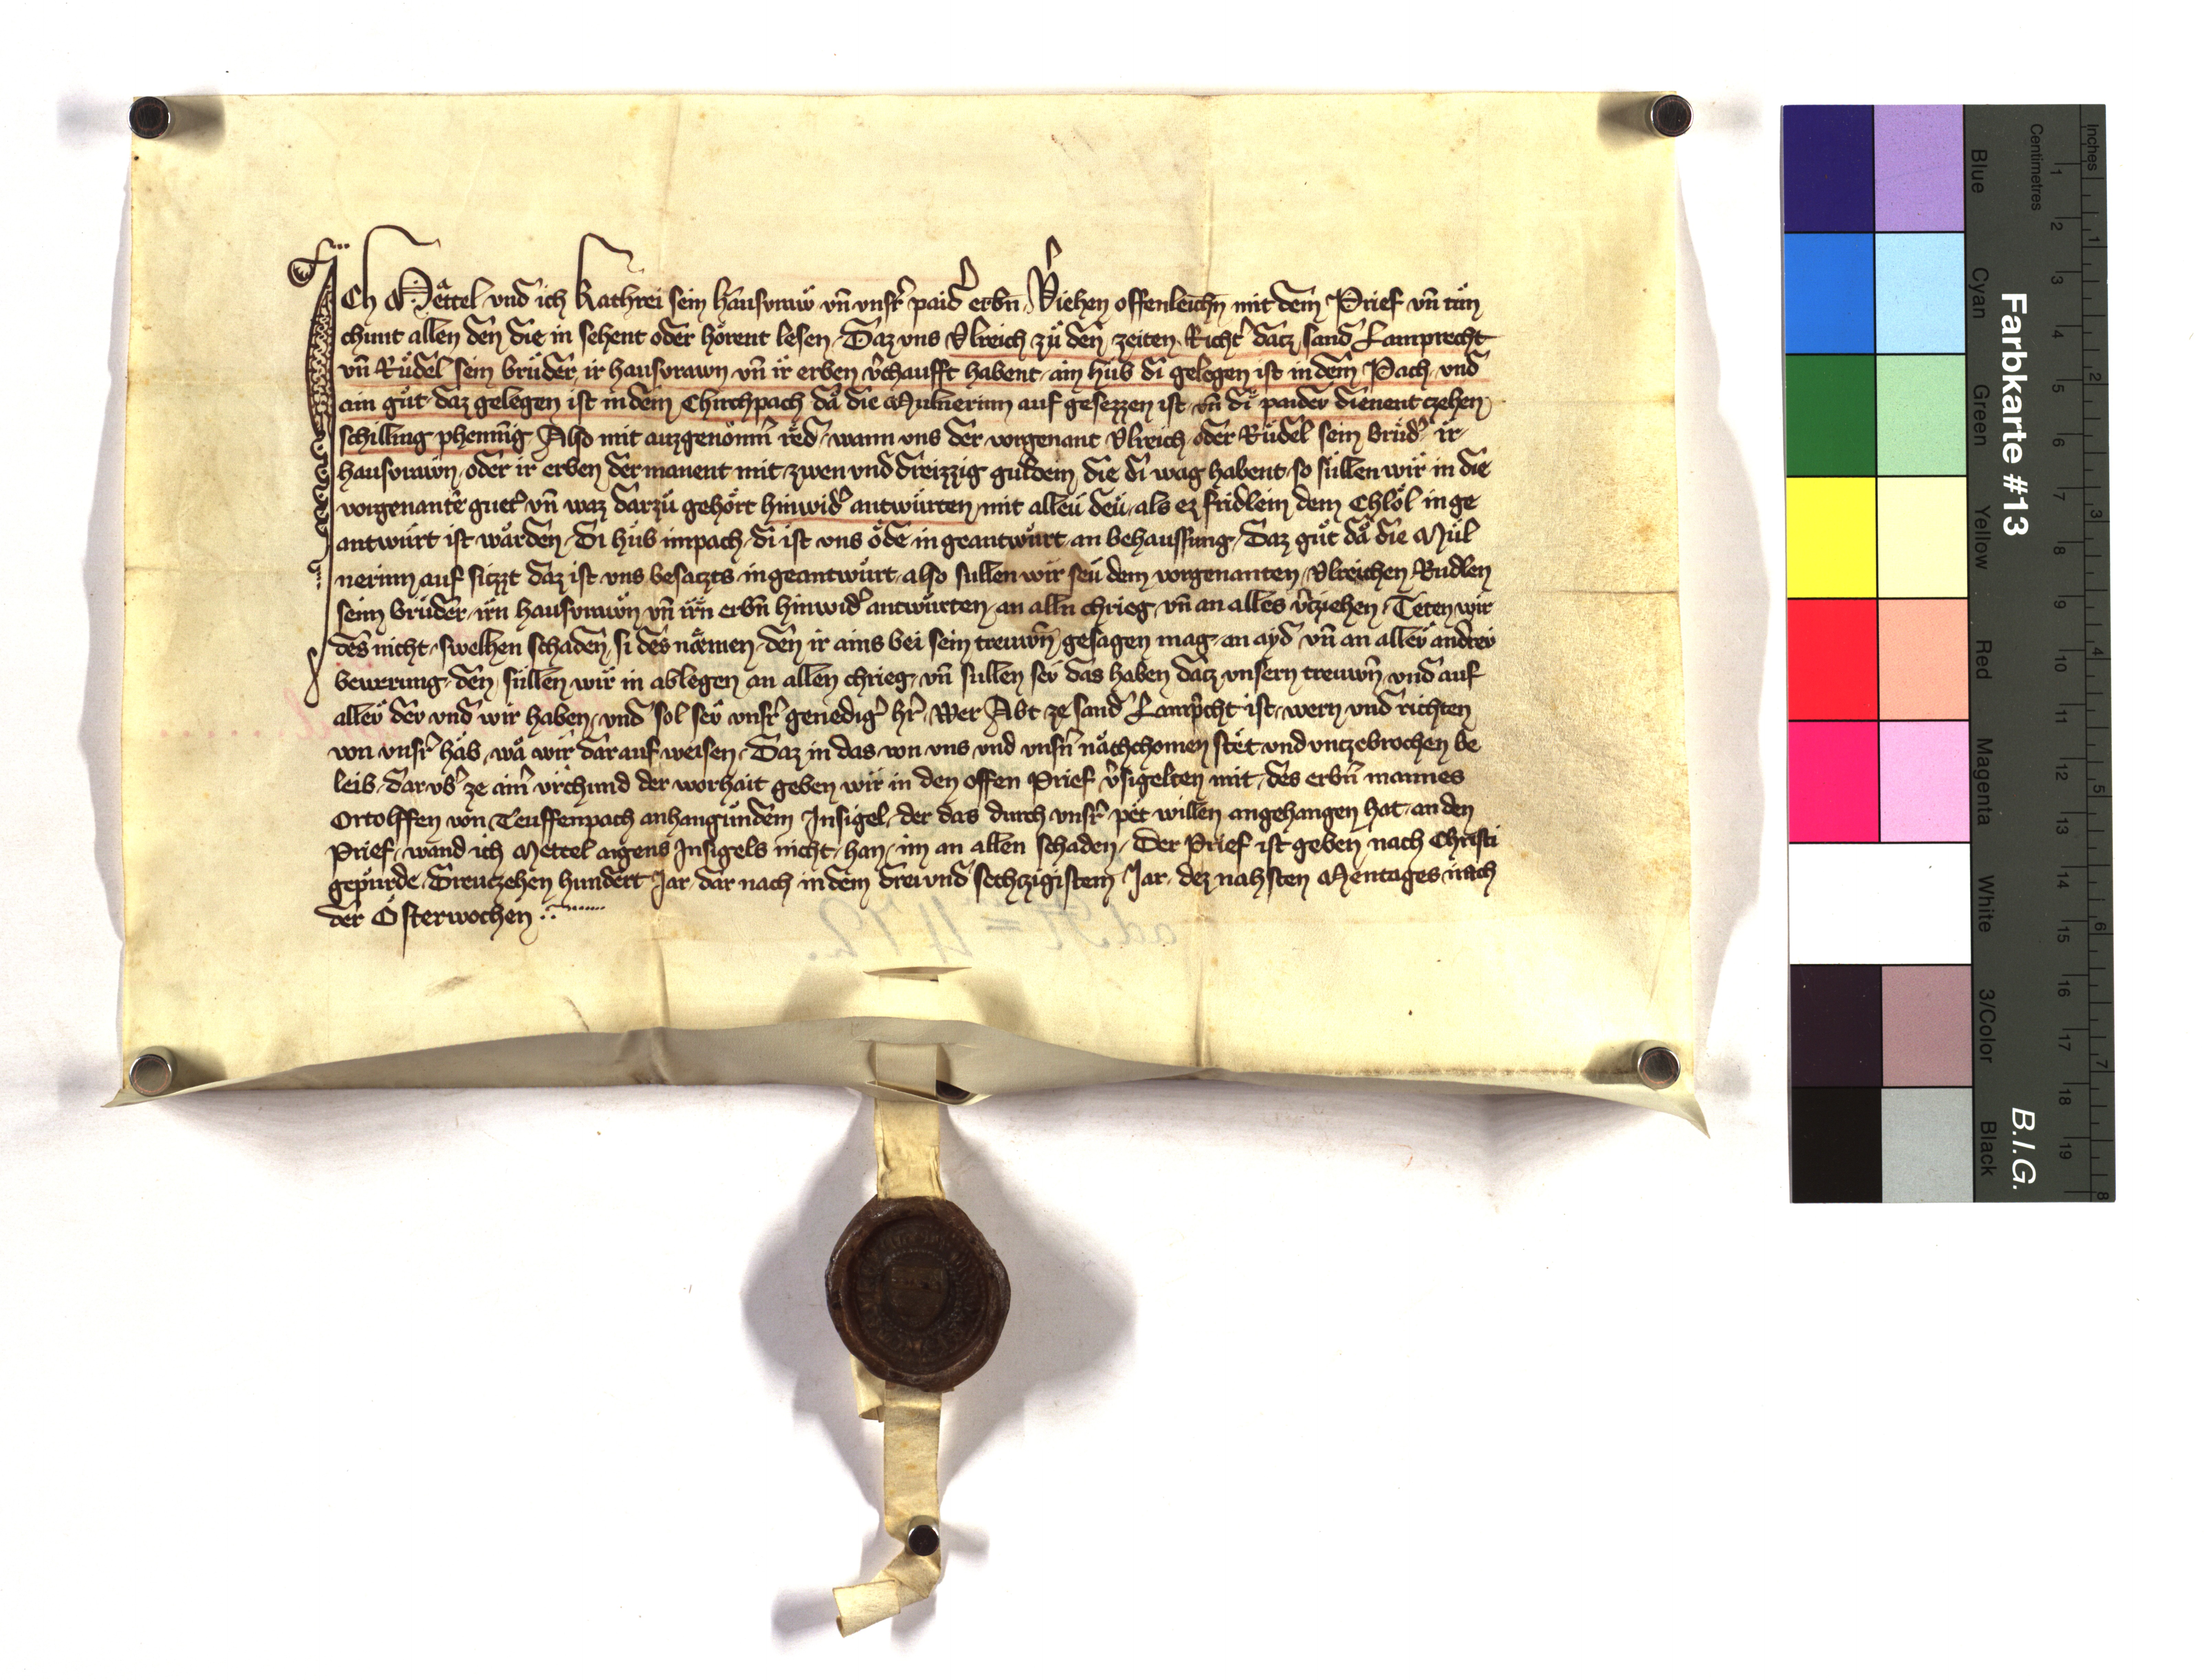 ICh Mettel vnd ich kathrei sein hausvraw vn̄ vnsr̄ paid' erbn̄ Viehen offenleichn̄ mit dem Prief vn̄ tuͤn
chunt allen den die in sehent oder hoͤrent lesen Daz vns Vlreich zuͤ den zeiten Richt' datz sand Lamprecht
vn̄ Ruͤdel sein bruͤder ir hausvrawn vn̄ ir erben v'chaufft habent ain huͤb di gelegen ist in dem Pach vnd
ain guͤt daz gelegen ist in dem Chirchpach daͤ die Mulnerinn auf gesezzen ist vn̄ di paider dienent czehen
schilling phenni̅g Also mit auzgenoͤmn̄ red wann vns der vorgenant Vlreich oder Ruͤdel sein bruͤd' ir
hausvrawn oder ir erben der manent mit zwen vnd dreizzig guldein die di wag habent so suͤllen wir in die
vorgenantē guet' vn̄ waz darzuͤ gehoͤrt hinwid' antwuͤrten mit alleu deu als ez fridlein dem Chloͤl in ge
antwuͤrt ist waͤrden Di huͤb impach di ist vns oͤde in geantwuͤrt an behaussung Daz guͤt daͤ die Muͤl
nerinn auf sitzt daz ist vns besatzts in geantwuͤrt also sullen wir seu dem vorgenanten Vlreichen Rudlen
seim bruͤder irn hausvrawn vn̄ irn erbn̄ hinwid' antwuͤrten an alln chrieg vn̄ an alles v'ziehen Teten wir
des nicht swelhen schaden si des naͤmen den ir ains bei sein treuwn̄ gesagen mag an ayd vn̄ an aller andrer
bewerung den suͤllen wir in ablegen an allen chrieg vn̄ sullen sev das haben datz vnsern treuwn̄ vnd auf
aller der vnd wir haben vnd sol sev vnsr̄ genedig' hr̄ wer Abt ze sand Lamp'cht ist wern vnd richten
von vnsr̄ haͤb waͤ wir dar auf weisen Daz in das von vns vnd vnsn̄ naͤchchomen stet vnd vnczebrochen be
leib dar vb' ze aim̄ vrchund der worhait geben wir in den offen Prief v'sigelten mit des erbn̄ mannes
Ortolffen von Teuffenpach anhangundem Insigel der das durch vnsr̄ pet willen angehangen hat an den
Prief wand ich Mettel aigens Insigels nicht han im an allen schaden Der Prief ist geben nach Christi
gepuͤrde Dreutzehen hundert Jar dar nach in dem drei vnd sechtzigistem Jar dez nahsten Mentages nach
der Osterwochen
Farbkarte #13
B.I.G.
Inches
Centimetres
1 2 3 4 5 6 7 8 9 10 11 12 13 14 15 16 17 18 19
1 2 3 4 5 6 7 8
Blue Cyan Green Yellow Red Magenta White 3/Color Black